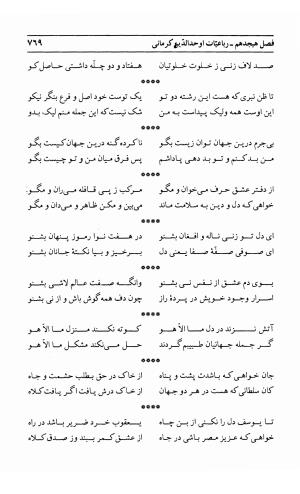 فصل هیجدهم - رباعیّات اوحدالدّین کرمانی ۷۶۹
صد لاف زنی ز خلوت خلوتیان هفتاد و دو چلّه داشتی حاصل کو
****
تا ظن نبری که هست این رشته دو تو یک توست خود اصل و فرع بنگر نیکو
این اوست همه ولیک پیداست به من شک نیست که این جمله منم لیک بدو
****
بی‌جرم درین جهان توان زیست بگو نا کرده گنه درین جهان کیست بگو
من بد کنم و تو بد دهی پاداشم پس فرق میان من و تو چیست بگو
****
از دفتر عشق حرف می‌خوان و مگو مرکب ز پی قافله می‌ران و مگو
خواهی که دل و دین به سلامت ماند می‌بین و مکن ظاهر و می‌دان و مگو
****
ای دل تو زنی ناله و افغان بشنو در هفت نوا رموز پنهان بشنو
ای صوفی صفّهٔ صفا یعنی دل برخیز و بیا نکتهٔ جانان بشنو
****
بوی دم عشق از نفس نی بشنو وانگه صفت عالم لاشی بشنو
اسرار وجود خویش در پردهٔ راز چون دف همه گوش باش و از نی بشنو
****
آتش نزند در دل ما الّا هو کوته نکند منزل ما الّا هو
گر جمله جهانیان طبیبم گردند حل می‌نکند مشکل ما الّا هو
****
جان خواهی که باشدت پشت و پناه از خاک در حق بطلب حشمت و جاه
کان سلطانی که هست در هر دو جهان از خاک درش یافت اگر یافت کلاه
****
تا یوسف دل را نکنی از بن چاه یعقوب خرد ضریر باشد در راه
خواهی که عزیز مصر باشی در جاه از عشق کمر ببند وز صدق کلاه